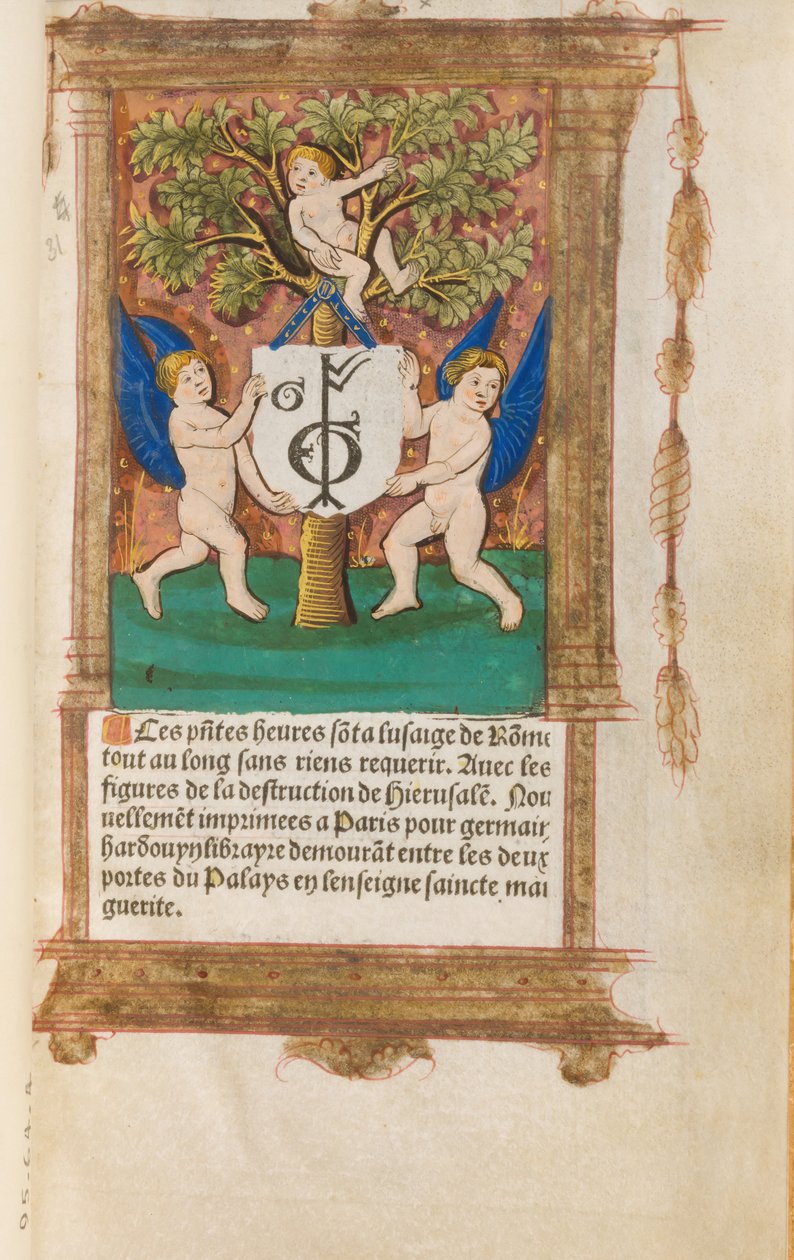 Ces pñtes heures sõt a lusaige de Rõme
tout au long sans riens requerir. Auec les
figures de la destruction de Hierusalẽ. Nou
uellemẽt imprimees a Paris pour germain
hardouyn librayre demourãt entre les deux
portes du Palays en lenseigne saincte mar
guerite.
31